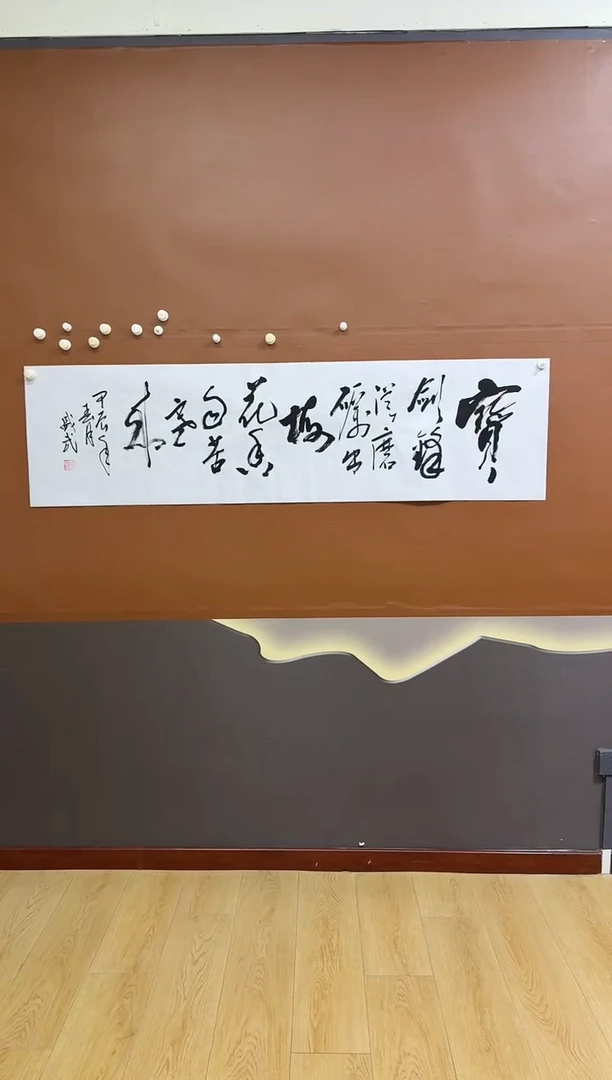 寶
劍鋒
從磨
礪出
梅
花香
自苦
寒
來
甲辰年
春月